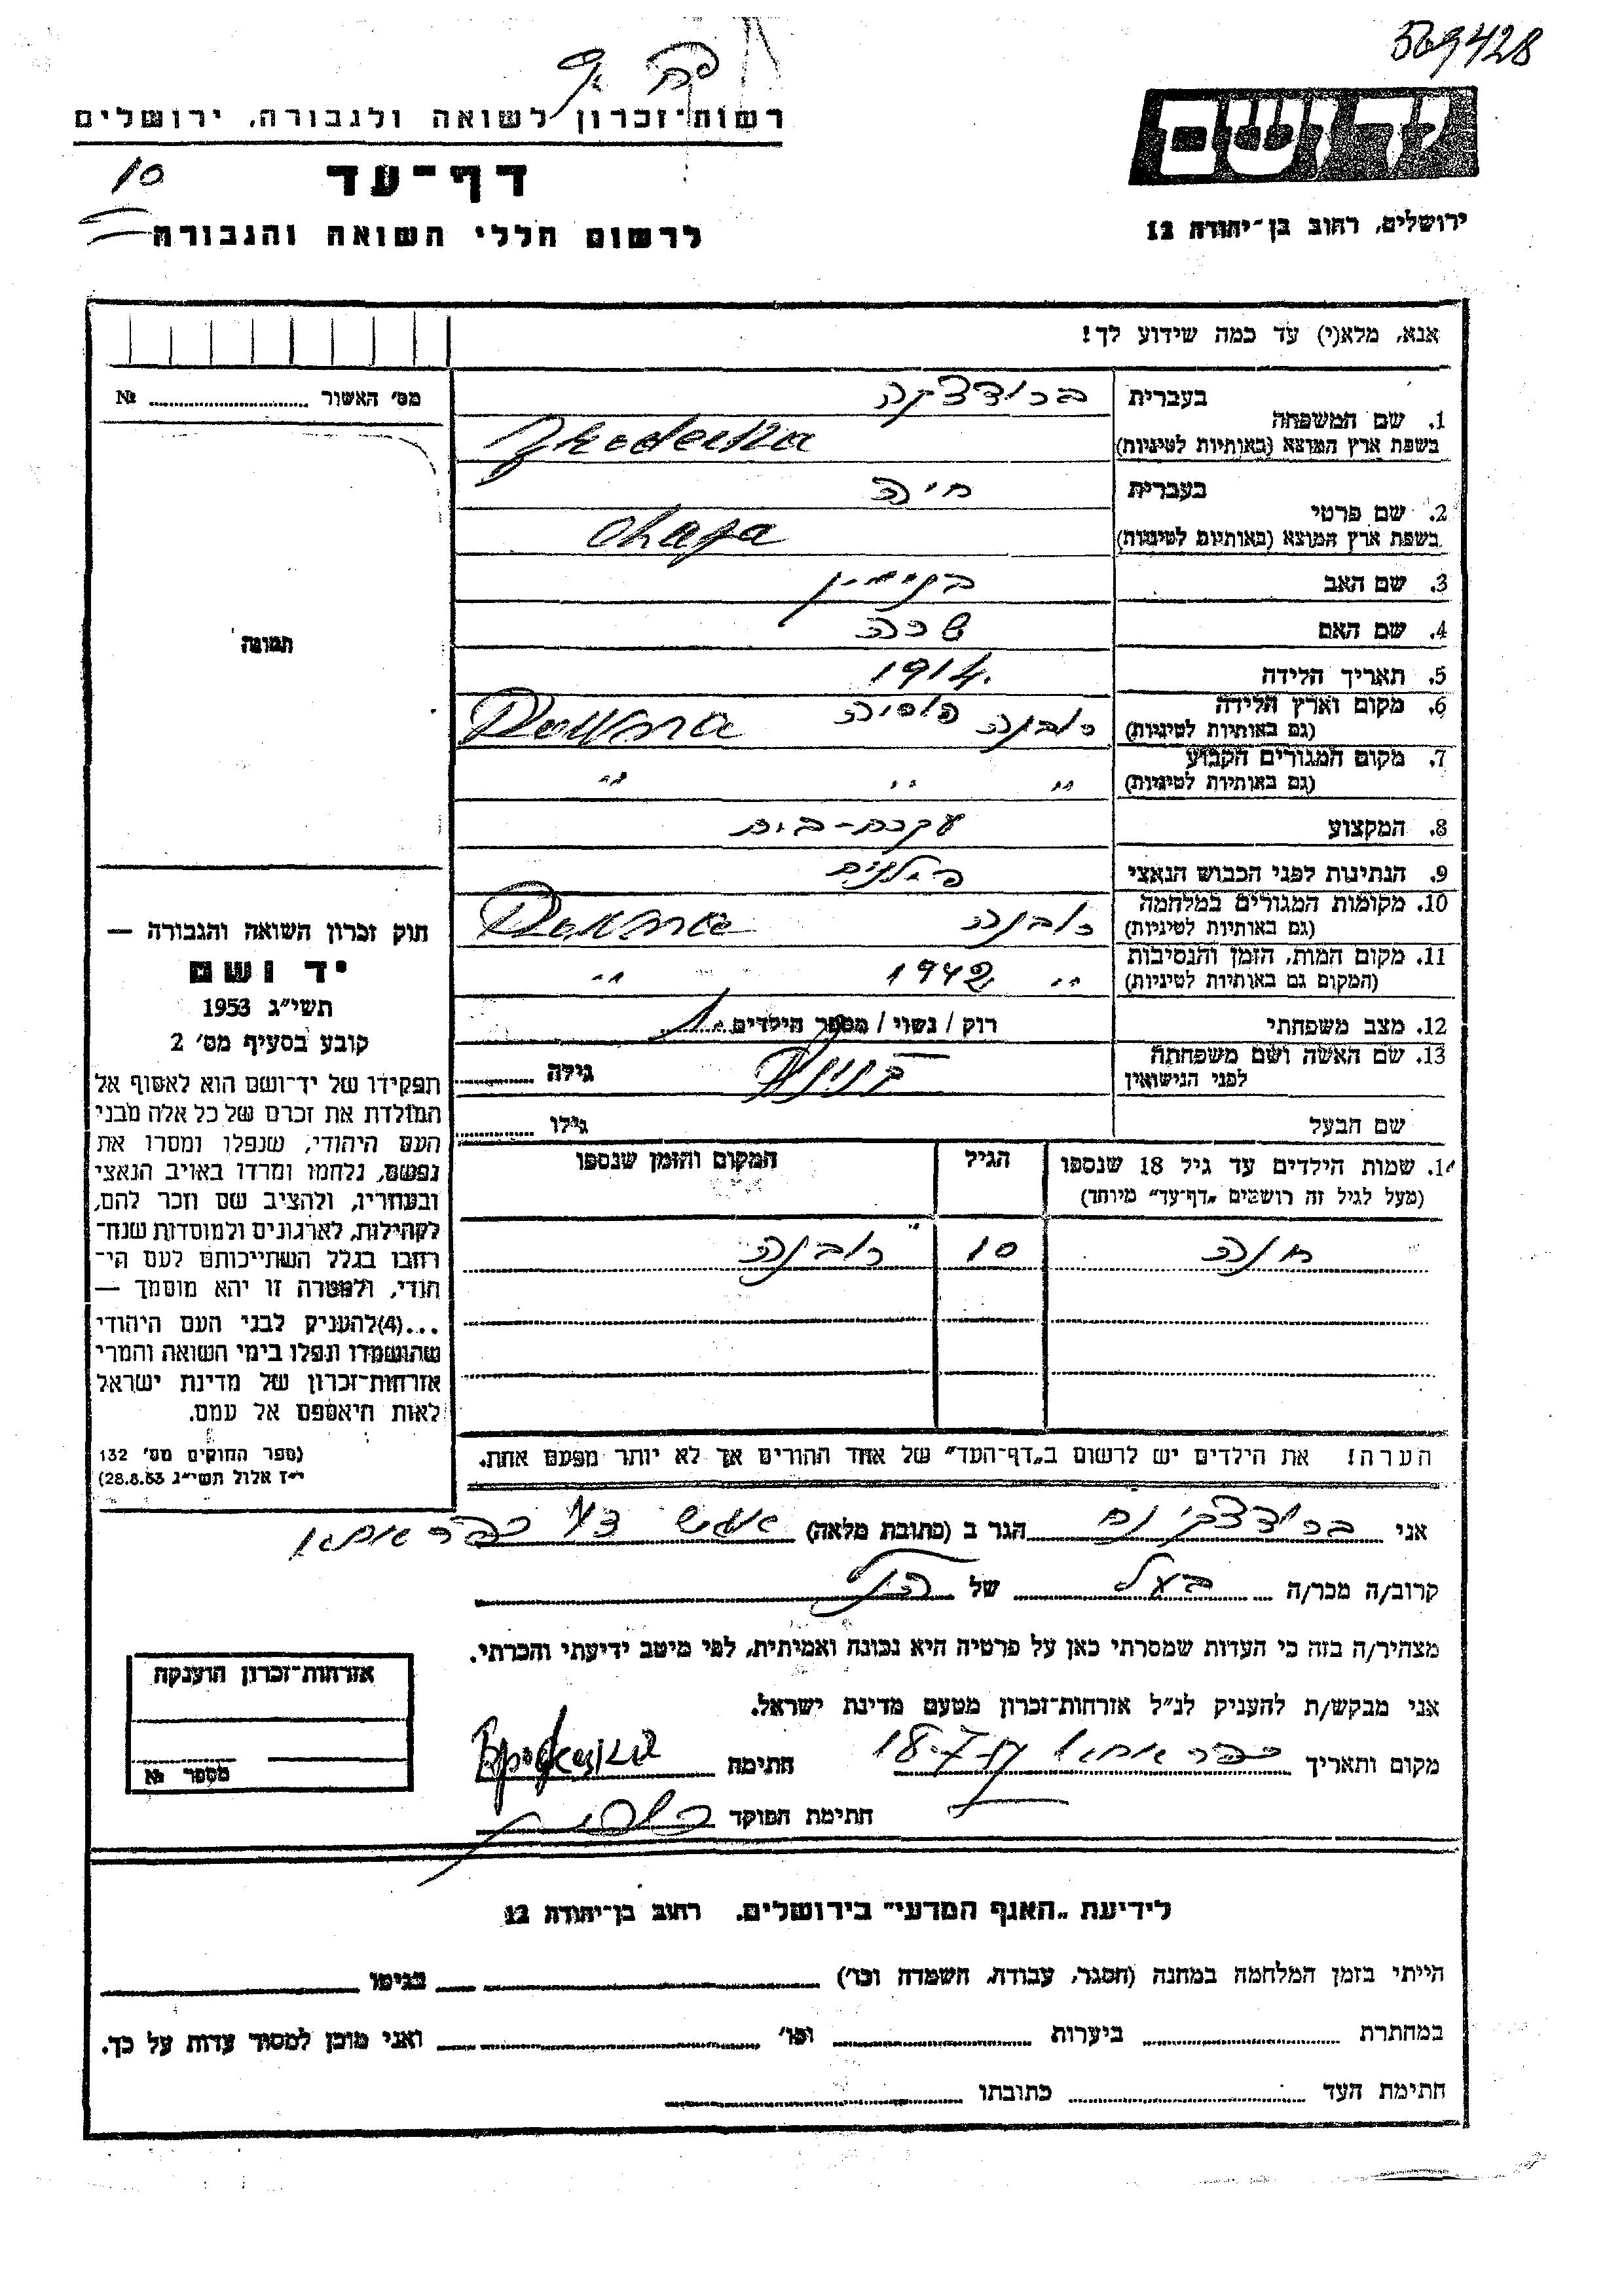 569428
רשות־זכרון לשואה ולגבורה, ירושלים
ידושם
10
דף־עד
לרשום חללי השואה והגבורה
ירושלים, רחוב בן־יהודה 12
אנא, מלא(י) עד כמה שידוע לך!
מס׳ האשור № 
בעברית
1. שם המשפחה
בשפת ארץ המוצא (באותיות לטיניות)
ברודצקה
בעברית חיה
2. שם פרטי
בשפת ארץ המוצא (באותיות לטיניות) Chaja
3. שם האב בנימין
4. שם האם שרה
5. תאריך הלידה 1914
6. מקום וארץ הלידה
(גם באותיות לטיניות)
7. מקום המגורים הקבוע
(גם באותיות לטיניות) " " "
8. המקצוע עקרת-בית
9. הנתינות לפני הכבוש הנאצי
10. מקומות המגורים במלחמה
(גם באותיות לטיניות)
11. מקום המות, הזמן והנסיבות
(המקום גם באותיות לטיניות) " 1942 "
12. מצב משפחתי רוק / נשוי / מספר הילדים 1
13. שם האשה ושם משפחתה
לפני הנישואין גילה
שם הבעל גילו
תמונה
חוק זכרון השואה והגבורה —
יד ושם
תשי״ג 1953
קובע בסעיף מס׳ 2
תפקידו של יד־ושם הוא לאסוף אל
המולדת את זכרם של כל אלה מבני
העם היהודי, שנפלו ומסרו את
נפשם, נלחמו ומרדו באויב הנאצי
ובעוזריו, ולהציב שם וזכר להם,
לקהילות, לארגונים ולמוסדות שנח־
רחבו בגלל השתייכותם לעם הי־
הודי, ולמטרה זו יהא מוסמך —
...(4)להעניק לבני העם היהודי
שהושמדו ונפלו בימי השואה והמרי
אזרחות־זכרון של מדינת ישראל
לאות היאספם אל עמם.
(ספר החוקים מס׳ 132
י״ז אלול תשי״ג 28.8.53)
14. שמות הילדים עד גיל 18 שנספו
(מעל לגיל זה רושמים „דף־עד״ מיוחד)
הגיל
המקום והזמן שנספו
חנה 10
הערה! את הילדים יש לרשום ב„דף־העד״ של אחד ההורים אך לא יותר מפעם אחת.
אני הגר ב (כתובת מלאה) כפר אתא
קרוב/ה מכר/ה בעל של הנ״ל
מצהיר/ה בזה כי העדות שמסרתי כאן על פרטיה היא נכונה ואמיתית, לפי מיטב ידיעתי והכרתי.
אני מבקש/ת להעניק לנ״ל אזרחות־זכרון מטעם מדינת ישראל.
מקום ותאריך כפר אתא חתימה
חתימת הפוקד
אזרחות־זכרון הוענקה
מספר №
לידיעת „האגף המדעי״ בירושלים. רחוב בן־יהודה 12
הייתי בזמן המלחמה במחנה (הסגר, עבודה, השמדה וכו׳) בגיטו
במחתרת ביערות וכו׳ ואני מוכן למסור עדות על כך.
חתימת העד כתובתו